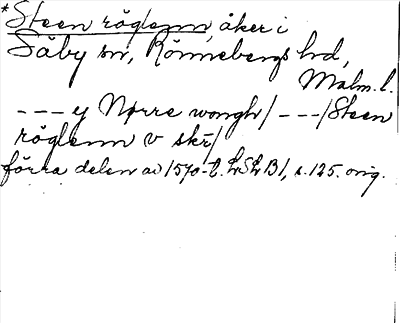 *Steen röglenn, åker i
Säby sn, Rönnebergs hd,
Malm. l.
--- y Nørre wongh/ ---/Steen
röglenn v skr̄/
förra delen av 1570-t. LSLB1, s. 125. orig.